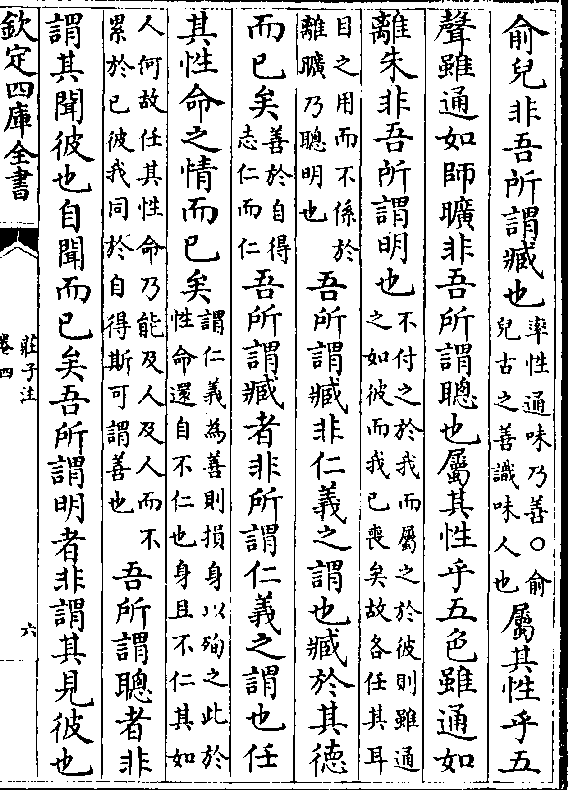 俞兒非吾所謂臧也率性通味乃善〇俞兒古之善識味人也屬其性乎五
聲雖通如師曠非吾所謂聰也屬其性乎五色雖通如
離朱非吾所謂明也不付之於我而屬之於彼則雖通之如彼而我已喪矣故各任其耳
目之用而不係於離曠乃聰明也吾所謂臧非仁義之謂也臧於其德
而已矣善於自得志仁而仁吾所謂臧者非所謂仁義之謂也任
其性命之情而已矣謂仁義為善則損身以殉之此於性命還自不仁也身且不仁其如
人何故任其性命乃能及人及人而不累於已彼我同於自得斯可謂善也吾所謂聰者非
謂其聞彼也自聞而已矣吾所謂明者非謂其見彼也
欽定四庫全書
莊子注
卷四
六